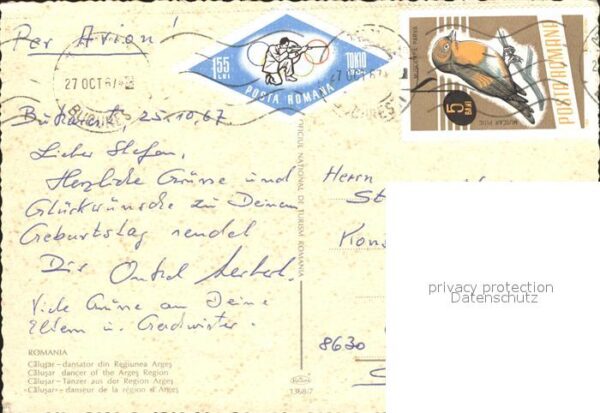 Per Avion!
1.55 LEI
TOKIO
POSTA ROMANA
27 OCT 67
27 OCT 67
POSTA ROMANA
5 BANI
MUSCAR PITIC
Bukarest, 25.10.67
Lieber Stefan,
Herzliche Grüsse und
Glückwünsche zu Deinem
Geburtstag sendet
Dir Onkel Herbert.
Viele Grüsse an Deine
Eltern u. Geschwister.
Herrn
St
Kons
8630
OFICIUL NATIONAL DE TURISM ROMANIA
privacy protection
Datenschutz
ROMANIA
Căluşar – dansator din Regiunea Argeş
Căluşar dancer of the Argeş Region
Căluşar – Tänzer aus der Region Argeş
Căluşar – danseur de la région d'Argeş
1368/7